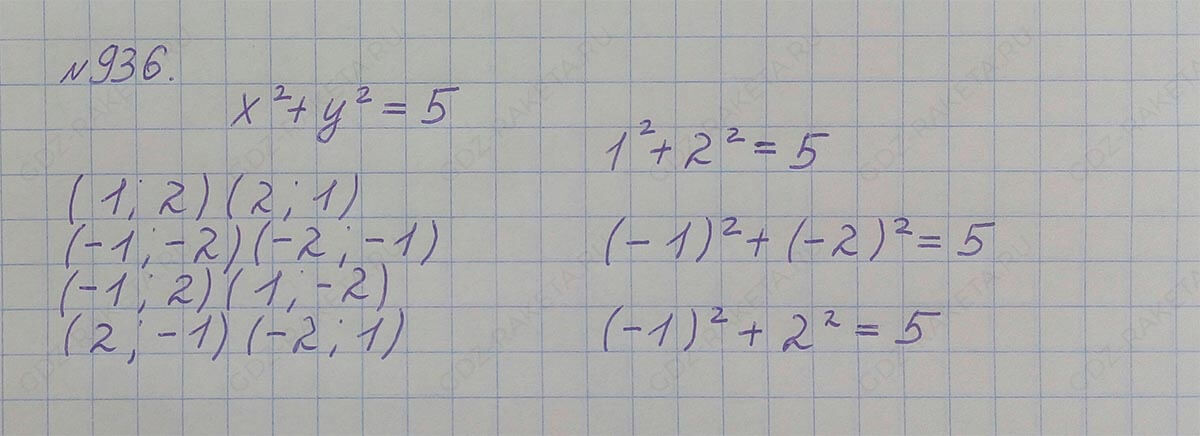 №936.
x² + y² = 5
(1; 2) (2; 1)
(-1; -2) (-2; -1)
(-1; 2) (1; -2)
(2; -1) (-2; 1)
1² + 2² = 5
(-1)² + (-2)² = 5
(-1)² + 2² = 5
GDZ-RAKETA.RU